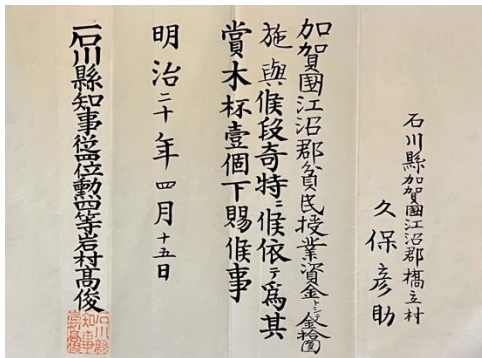 石川縣加賀國江沼郡橋立村
久保彦助
加賀國江沼郡貧民授業資金トシテ金拾圓
施與候段奇特ニ候依テ為其
賞木杯壹個下賜候事
明治二十年四月十五日
石川縣知事從四位勳四等岩村高俊
石川縣
知事